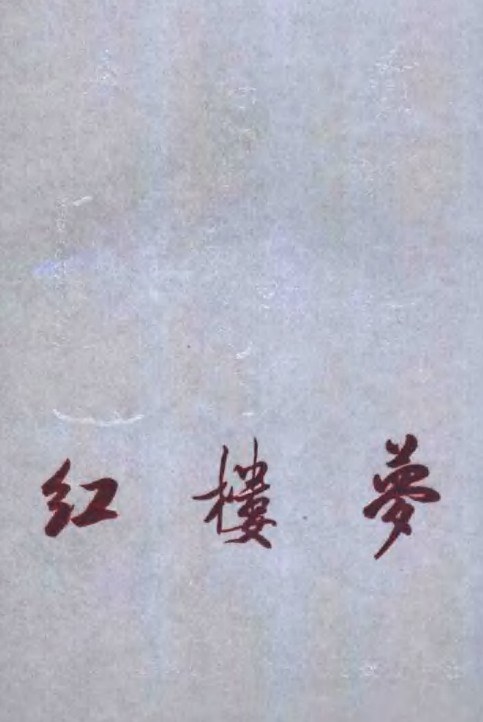 红樓夢